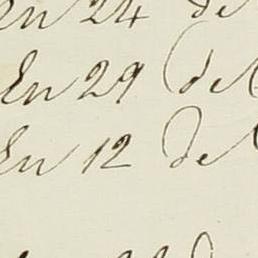 En 24 de
En 29 de
En 12 de